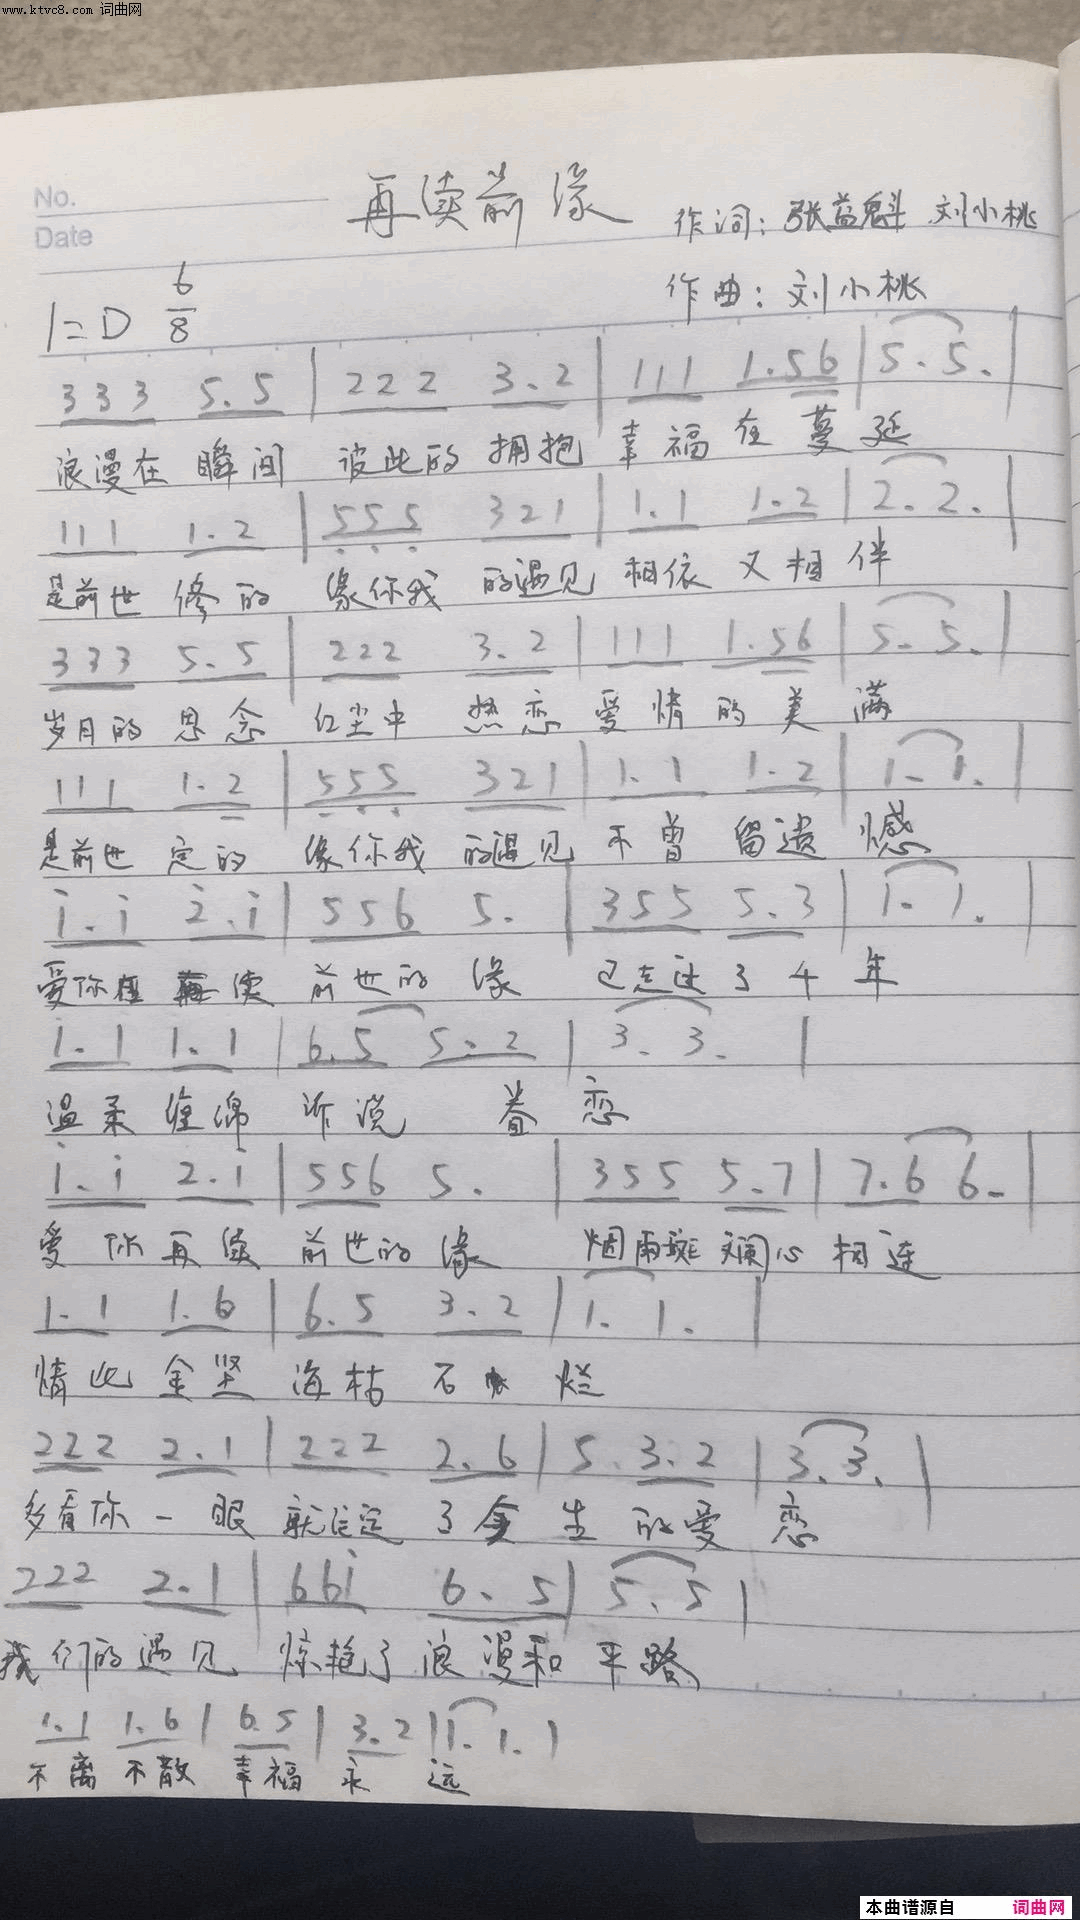 www.ktvc8.com 词曲网
No.
Date
再续前缘
作词：张益魁 刘小桃
作曲：刘小桃
1=D 6/8
333 5.5 | 222 3.2 | 111 1.56 | 5. 5. |
浪漫在瞬间 彼此的拥抱 幸福在蔓延
111 1.2 | 555 321 | 1.1 1.2 | 2. 2. |
是前世修的 缘你我的遇见 相依又相伴
333 5.5 | 222 3.2 | 111 1.56 | 5. 5. |
岁月的思念 红尘中热恋 爱情的美满
111 1.2 | 555 321 | 1.1 1.2 | 1. 1. |
是前世定的 缘你我的遇见 不曾留遗憾
i.i 2.i | 556 5. | 355 5.3 | 1. 1. |
爱你 续 前世的缘 已走过了千年
1.1 1.1 | 6.5 5.2 | 3. 3. |
温柔缠绵 诉说眷恋
i.i 2.i | 556 5. | 355 5.7 | 7.6 6. |
爱你再续 前世的缘 烟雨斑斓心相连
1.1 1.6 | 6.5 3.2 | 1. 1. |
情比金坚 海枯石 烂
222 2.1 | 222 2.6 | 5. 3.2 | 3. 3. |
多看你一眼 就注定了 生的爱恋
222 2.1 | 66i 6.5 | 5. 5 |
我们的遇见 惊艳了浪漫和平路
1.1 1.6 | 6.5 | 3.2 | 1. 1. |
不离不散 幸福永远
本曲谱源自 词曲网